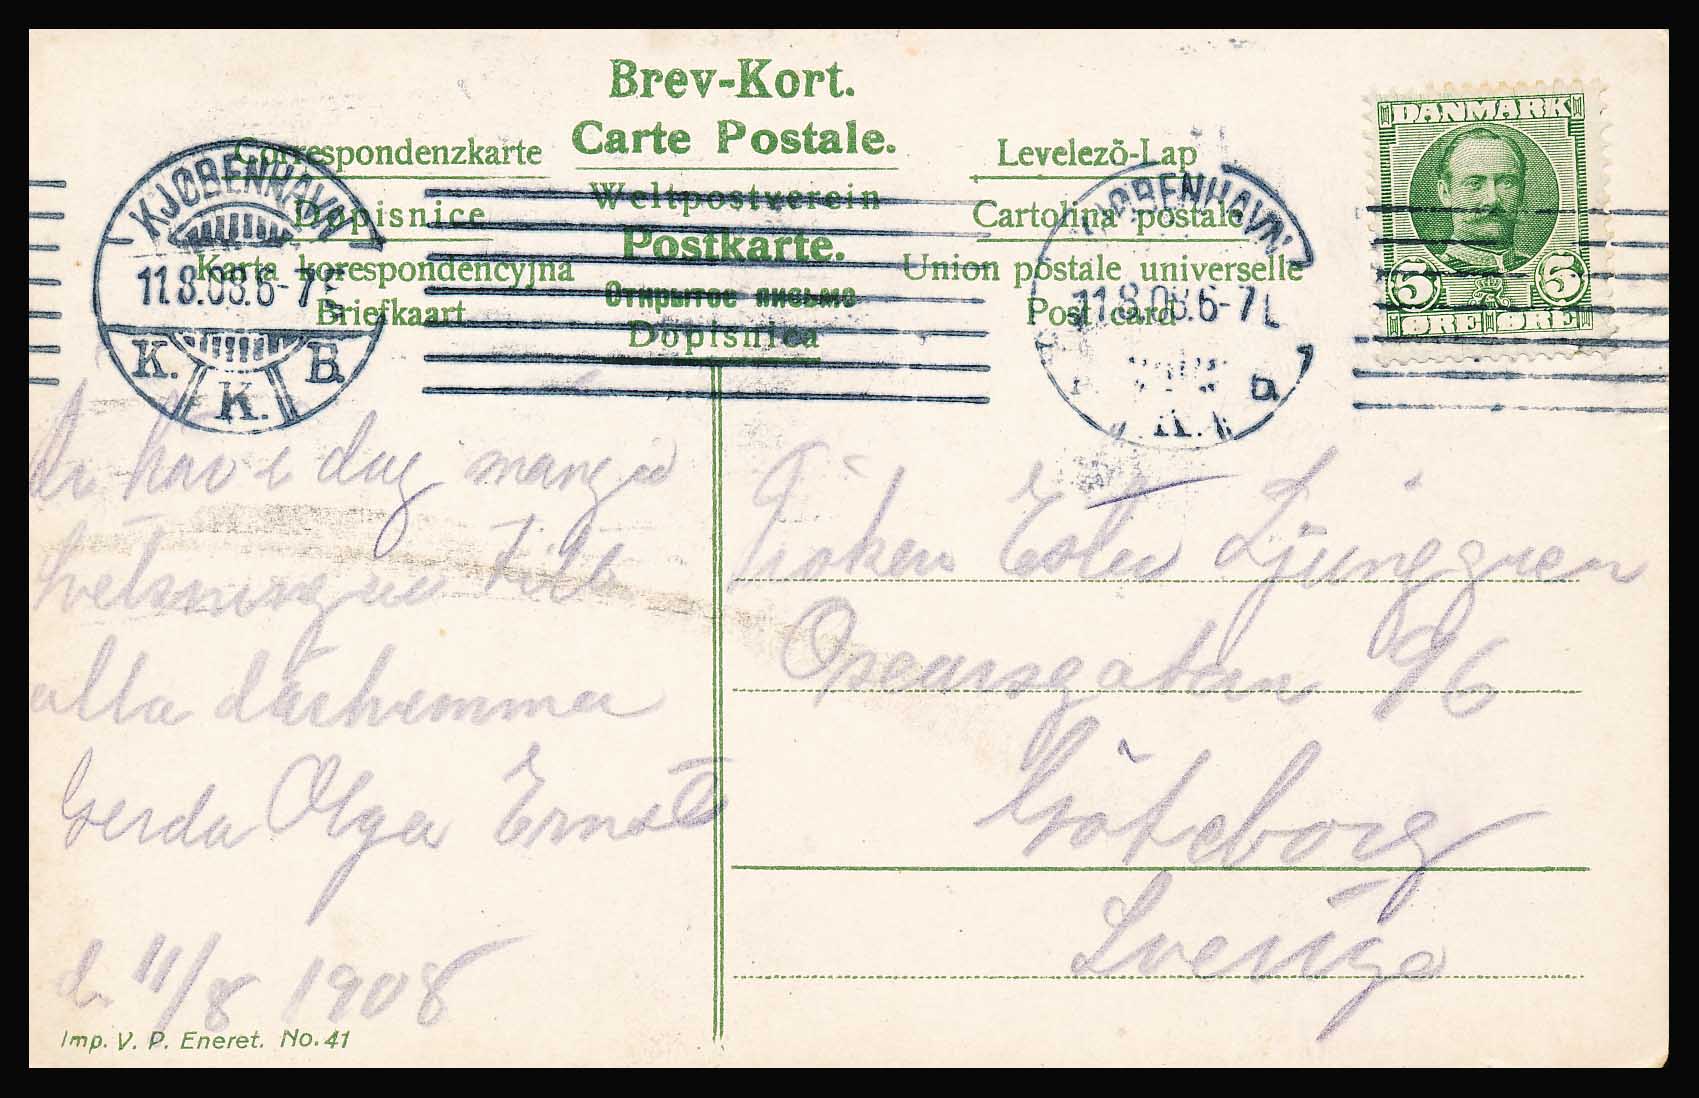 Brev-Kort.
Carte Postale.
Correspondenzkarte
Levelezõ-Lap
Weltpostverein
Dopisnice
Cartolina postale
Postkarte.
Karta korespondencyjna
Union postale universelle
Открытое письмо
Briefkaart
Post card
Dopisnica
KJØBENHAVN
11.8.08.6-7E
K. K. B.
KJØBENHAVN
11.8.08.6-7E
K. B.
DANMARK
5 5
ØRE ØRE
har i dag många
helsningar till
alla därhemma
Gerda Olga Ernst
d. 11/8 1908
Fröken Ester Ljunggren
Oscarsgatan 96
Göteborg
Sverige
Imp. V. P. Eneret. No. 41